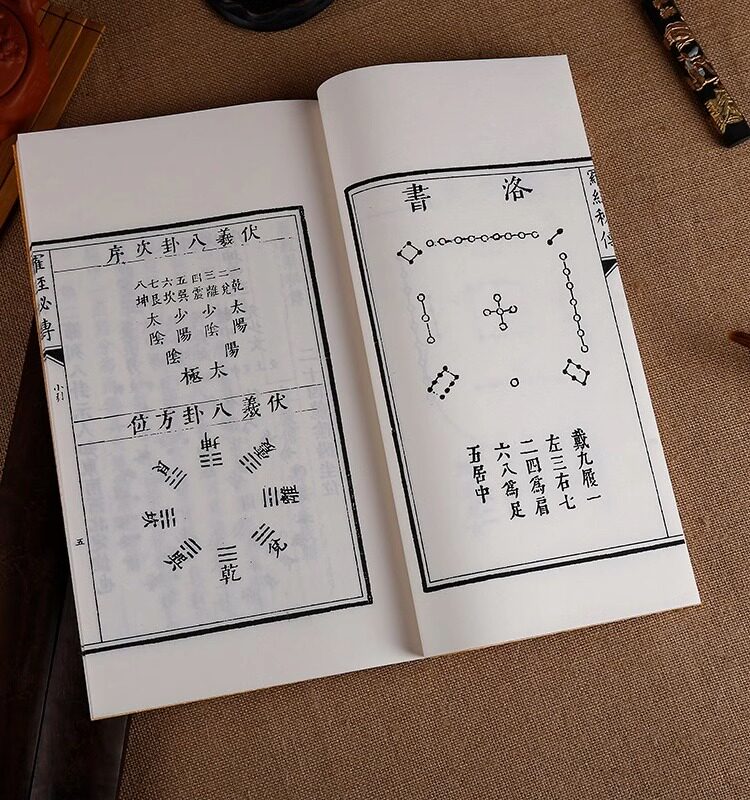 洛書
戴九履一
左三右七
二四爲肩
六八爲足
五居中
伏羲八卦次序
一乾
二兌
三離
四震
五巽
六坎
七艮
八坤
太陽
少陰
少陽
太陰
陽
陰
太極
伏羲八卦方位
坤
震
離
兌
乾
巽
坎
艮
小引
五